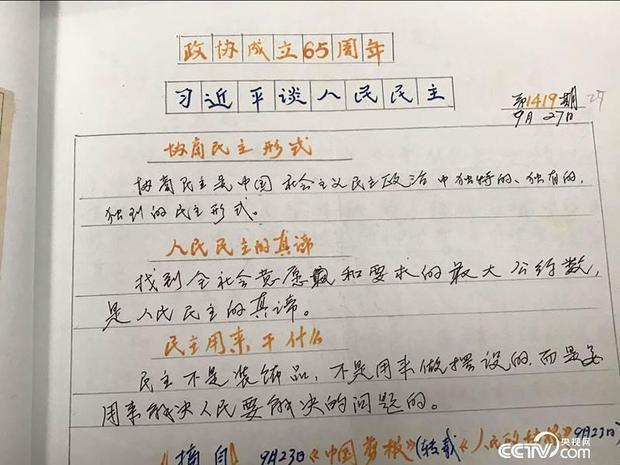 政协成立65周年
习近平谈人民民主
第1419期 27
9月27日
协商民主形式
协商民主是中国社会主义民主政治中独特的、独有的、
独到的民主形式。
人民民主的真谛
找到全社会意愿和要求的最大公约数,
是人民民主的真谛。
民主用来干什么
民主不是装饰品,不是用来做摆设的,而是要
用来解决人民要解决的问题的。
摘自 9月23日《中国剪报》(转载《人民 9月23日
央视网
CCTV.com